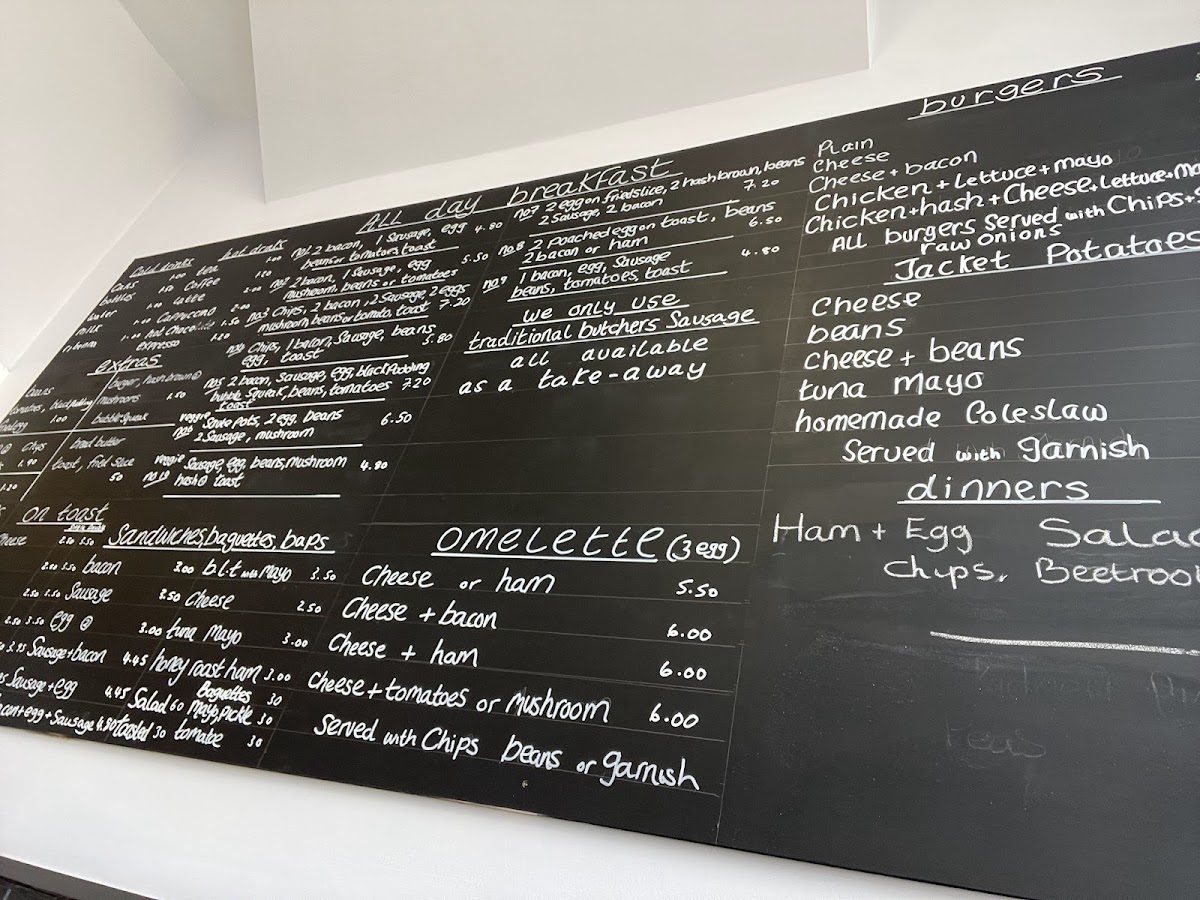 Cold drinks
Cans
bottles
water
milk
ribena
hot drinks
tea 1.00
Coffee 1.20
Latte 2.00
Cappuccino
hot Chocolate 1.50
espresso 1.20
extras
burger, hash brown
Mushrooms 1.50
bubble Squeak
bread butter
toast, fried Slice
50
beans
tomatoes, black pudding
1.00
Chips
1.80
ALL day breakfast
no1 2 bacon, 1 Sausage, egg 4.80
beans or tomatoes, toast
no2 2 bacon, 1 Sausage, egg 5.50
mushroom, beans or tomatoes
no3 Chips, 2 bacon, 2 Sausage, 2 eggs
mushroom, beans or tomato, toast 7.20
no4 Chips, 1 bacon, Sausage, beans, 5.80
egg, toast
no5 2 bacon, Sausage, egg, black Pudding
bubble Squeak, beans, tomatoes 7.20
toast
veggie Saute pots, 2 egg, beans 6.50
no6 2 Sausage, mushroom
veggie Sausage, egg, beans, mushroom 4.80
no10 hash @ toast
no7 2 egg on fried slice, 2 hash brown, beans
2 Sausage, 2 bacon 7.20
no8 2 Poached egg on toast, beans
2 bacon or ham 6.50
no9 1 bacon, egg, Sausage 4.80
beans, tomatoes, toast
we only use
traditional butchers Sausage
all available
as a take-away
on toast
Cheese
Sandwiches, baguettes, baps
2.50 3.50 bacon 3.00
2.50 3.50 Sausage 2.50
2.50 3.50 egg @ 3.00
3.75 Sausage + bacon 4.45
Sausage + egg 4.45
bacon + egg + Sausage 4.80
b.l.t with Mayo 3.50
Cheese 2.50
tuna Mayo 3.00
honey roast ham 3.00
Baguettes 30
Salad 60 Mayo, Pickle 30
toasted 30 tomatoe 30
omelette (3 egg)
Cheese or ham 5.50
Cheese + bacon 6.00
Cheese + ham 6.00
Cheese + tomatoes or mushroom 6.00
Served with Chips beans or garnish
burgers
Plain
Cheese
Cheese + bacon
Chicken + Lettuce + mayo
Chicken + hash + Cheese, Lettuce + Ma
ALL burgers Served with Chips +
raw onions
Jacket Potatoes
Cheese
beans
Cheese + beans
tuna mayo
homemade Coleslaw
Served with garnish
dinners
Ham + Egg Salad
Chips, Beetroo
Peas